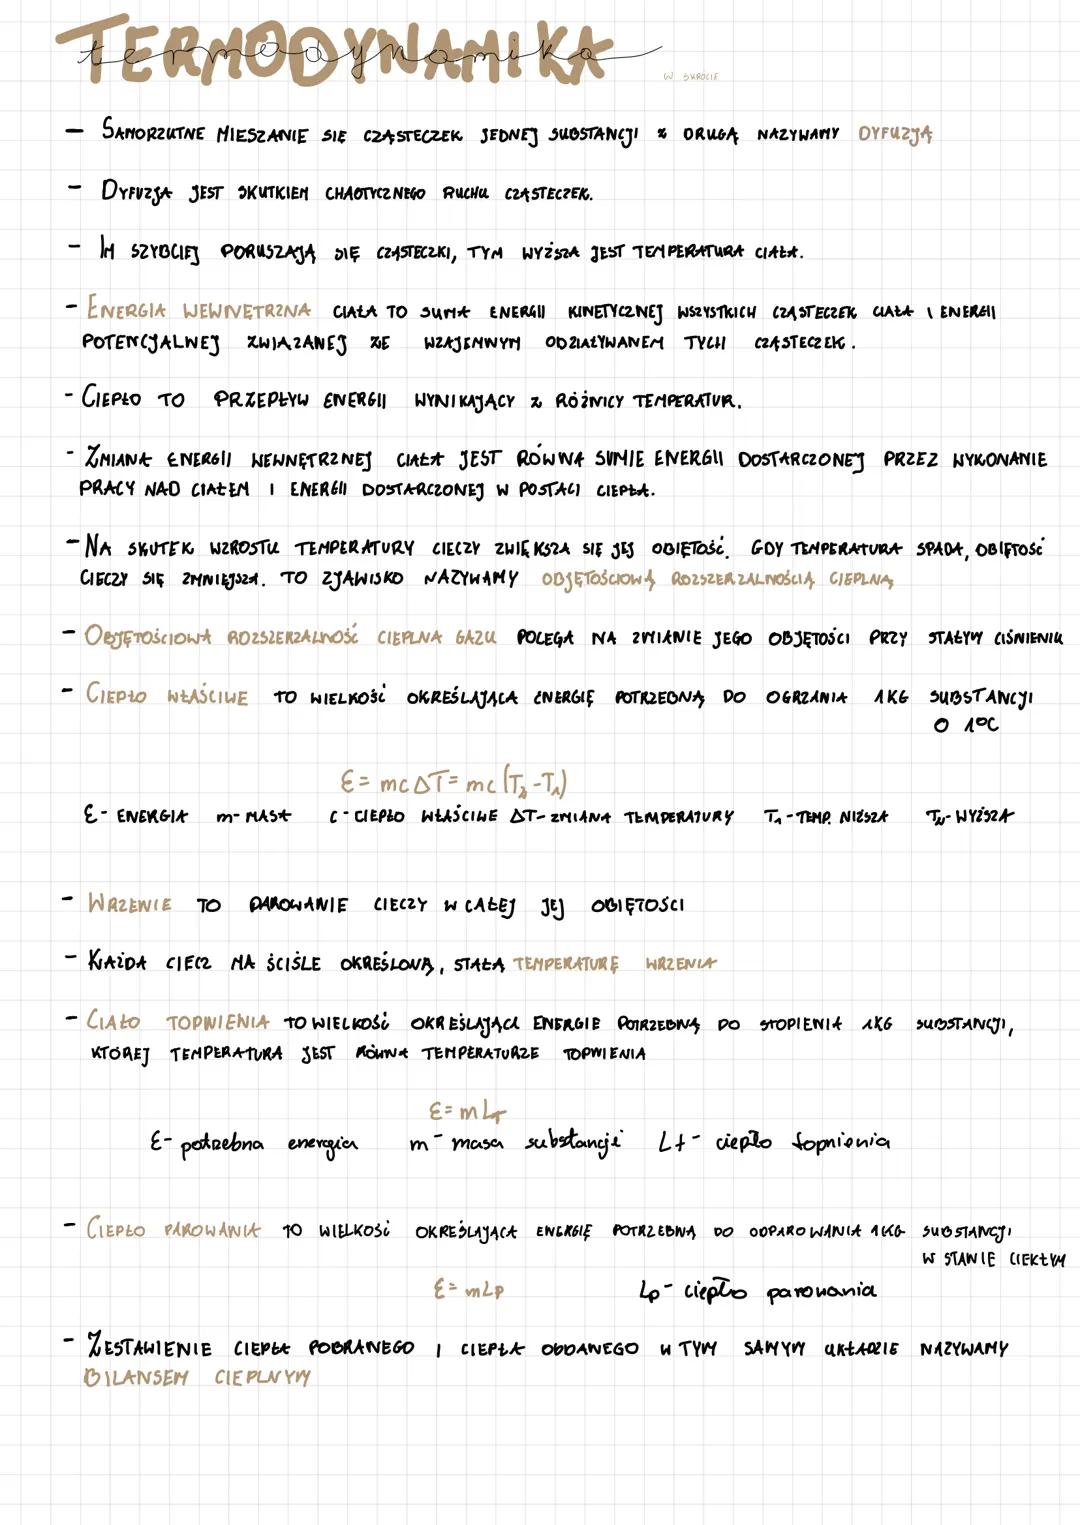 TERMODYNAMIKA
termodynamika
W SKRÓCIE
- SAMORZUTNE MIESZANIE SIĘ CZĄSTECZEK JEDNEJ SUBSTANCJI Z DRUGĄ NAZYWAMY DYFUZJĄ
- DYFUZJA JEST SKUTKIEM CHAOTYCZNEGO RUCHU CZĄSTECZEK.
- IM SZYBCIEJ PORUSZAJĄ SIĘ CZĄSTECZKI, TYM WYŻSZA JEST TEMPERATURA CIAŁA.
- ENERGIA WEWNĘTRZNA CIAŁA TO SUMA ENERGII KINETYCZNEJ WSZYSTKICH CZĄSTECZEK CIAŁA I ENERGII
POTENCJALNEJ ZWIĄZANEJ ZE WZAJEMNYM ODZIAŁYWANEM TYCH CZĄSTECZEK.
- CIEPŁO TO PRZEPŁYW ENERGII WYNIKAJĄCY Z RÓŻNICY TEMPERATUR.
- ZMIANA ENERGII WEWNĘTRZNEJ CIAŁA JEST RÓWNA SUMIE ENERGII DOSTARCZONEJ PRZEZ WYKONANIE
PRACY NAD CIAŁEM I ENERGII DOSTARCZONEJ W POSTACI CIEPŁA.
- NA SKUTEK WZROSTU TEMPERATURY CIECZY ZWIĘKSZA SIĘ JEJ OBJĘTOŚĆ. GDY TEMPERATURA SPADA, OBJĘTOŚĆ
CIECZY SIĘ ZMNIEJSZA. TO ZJAWISKO NAZYWAMY OBJĘTOŚCIOWĄ ROZSZERZALNOŚCIĄ CIEPLNĄ
- OBJĘTOŚCIOWA ROZSZERZALNOŚĆ CIEPLNA GAZU POLEGA NA ZMIANIE JEGO OBJĘTOŚCI PRZY STAŁYM CIŚNIENIU
- CIEPŁO WŁAŚCIWE TO WIELKOŚĆ OKREŚLAJĄCA ENERGIĘ POTRZEBNĄ DO OGRZANIA 1KG SUBSTANCJI
O 1°C
E = mcΔT = mc(T₂-T₁)
E - ENERGIA m - MASA c - CIEPŁO WŁAŚCIWE ΔT - ZMIANA TEMPERATURY T₁ - TEMP. NIŻSZA T₂ - WYŻSZA
- WRZENIE TO PAROWANIE CIECZY W CAŁEJ JEJ OBJĘTOŚCI
- KAŻDA CIECZ MA ŚCIŚLE OKREŚLONĄ, STAŁĄ TEMPERATURĘ WRZENIA
- CIAŁO TOPNIENIA TO WIELKOŚĆ OKREŚLAJĄCA ENERGIE POTRZEBNĄ DO STOPIENIA 1KG SUBSTANCJI,
KTÓREJ TEMPERATURA JEST RÓWNA TEMPERATURZE TOPNIENIA
E = mLt
E - potrzebna energia m - masa substancji Lt - ciepło topnienia
- CIEPŁO PAROWANIA TO WIELKOŚĆ OKREŚLAJĄCA ENERGIĘ POTRZEBNĄ DO ODPAROWANIA 1KG SUBSTANCJI
W STANIE CIEKŁYM
E = mLp Lp - ciepło parowania
- ZESTAWIENIE CIEPŁA POBRANEGO I CIEPŁA ODDANEGO W TYM SAMYM UKŁADZIE NAZYWAMY
BILANSEM CIEPLNYM